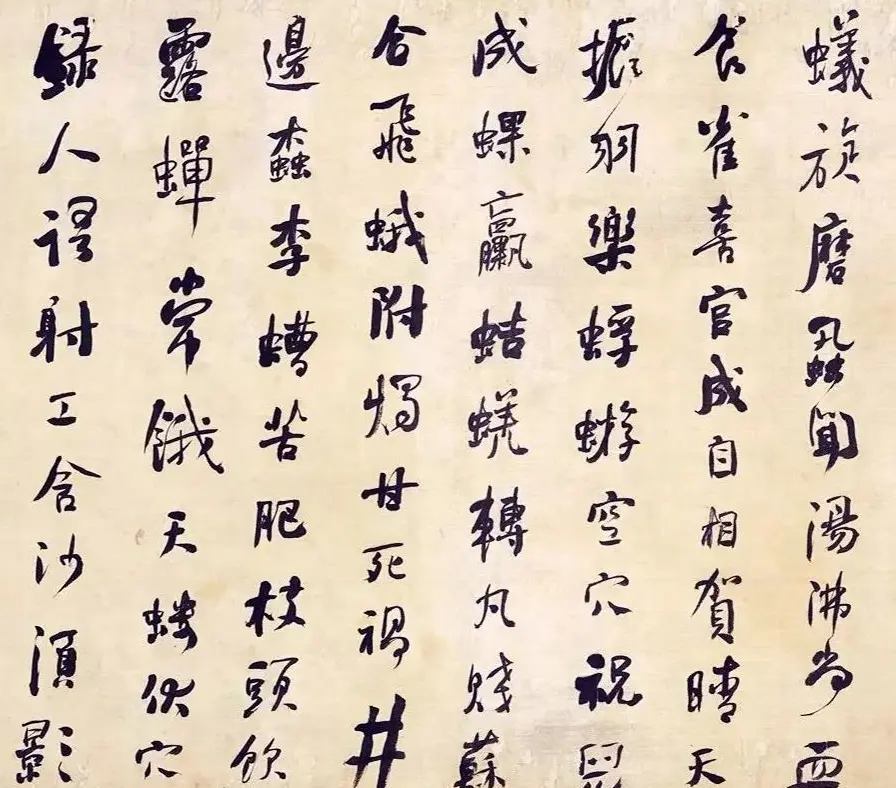 蟻旋磨蝨聞湯沸尚血
食雀喜宮成自相賀晴天
振羽樂蜉蝣空穴祝兒
成蜾蠃蛣蜣轉丸賤蘇
合飛蛾附燭甘死禍井
邊蠹李螬苦肥枝頭飲
露蟬常餓天螻伏穴
録人語射工含沙須影